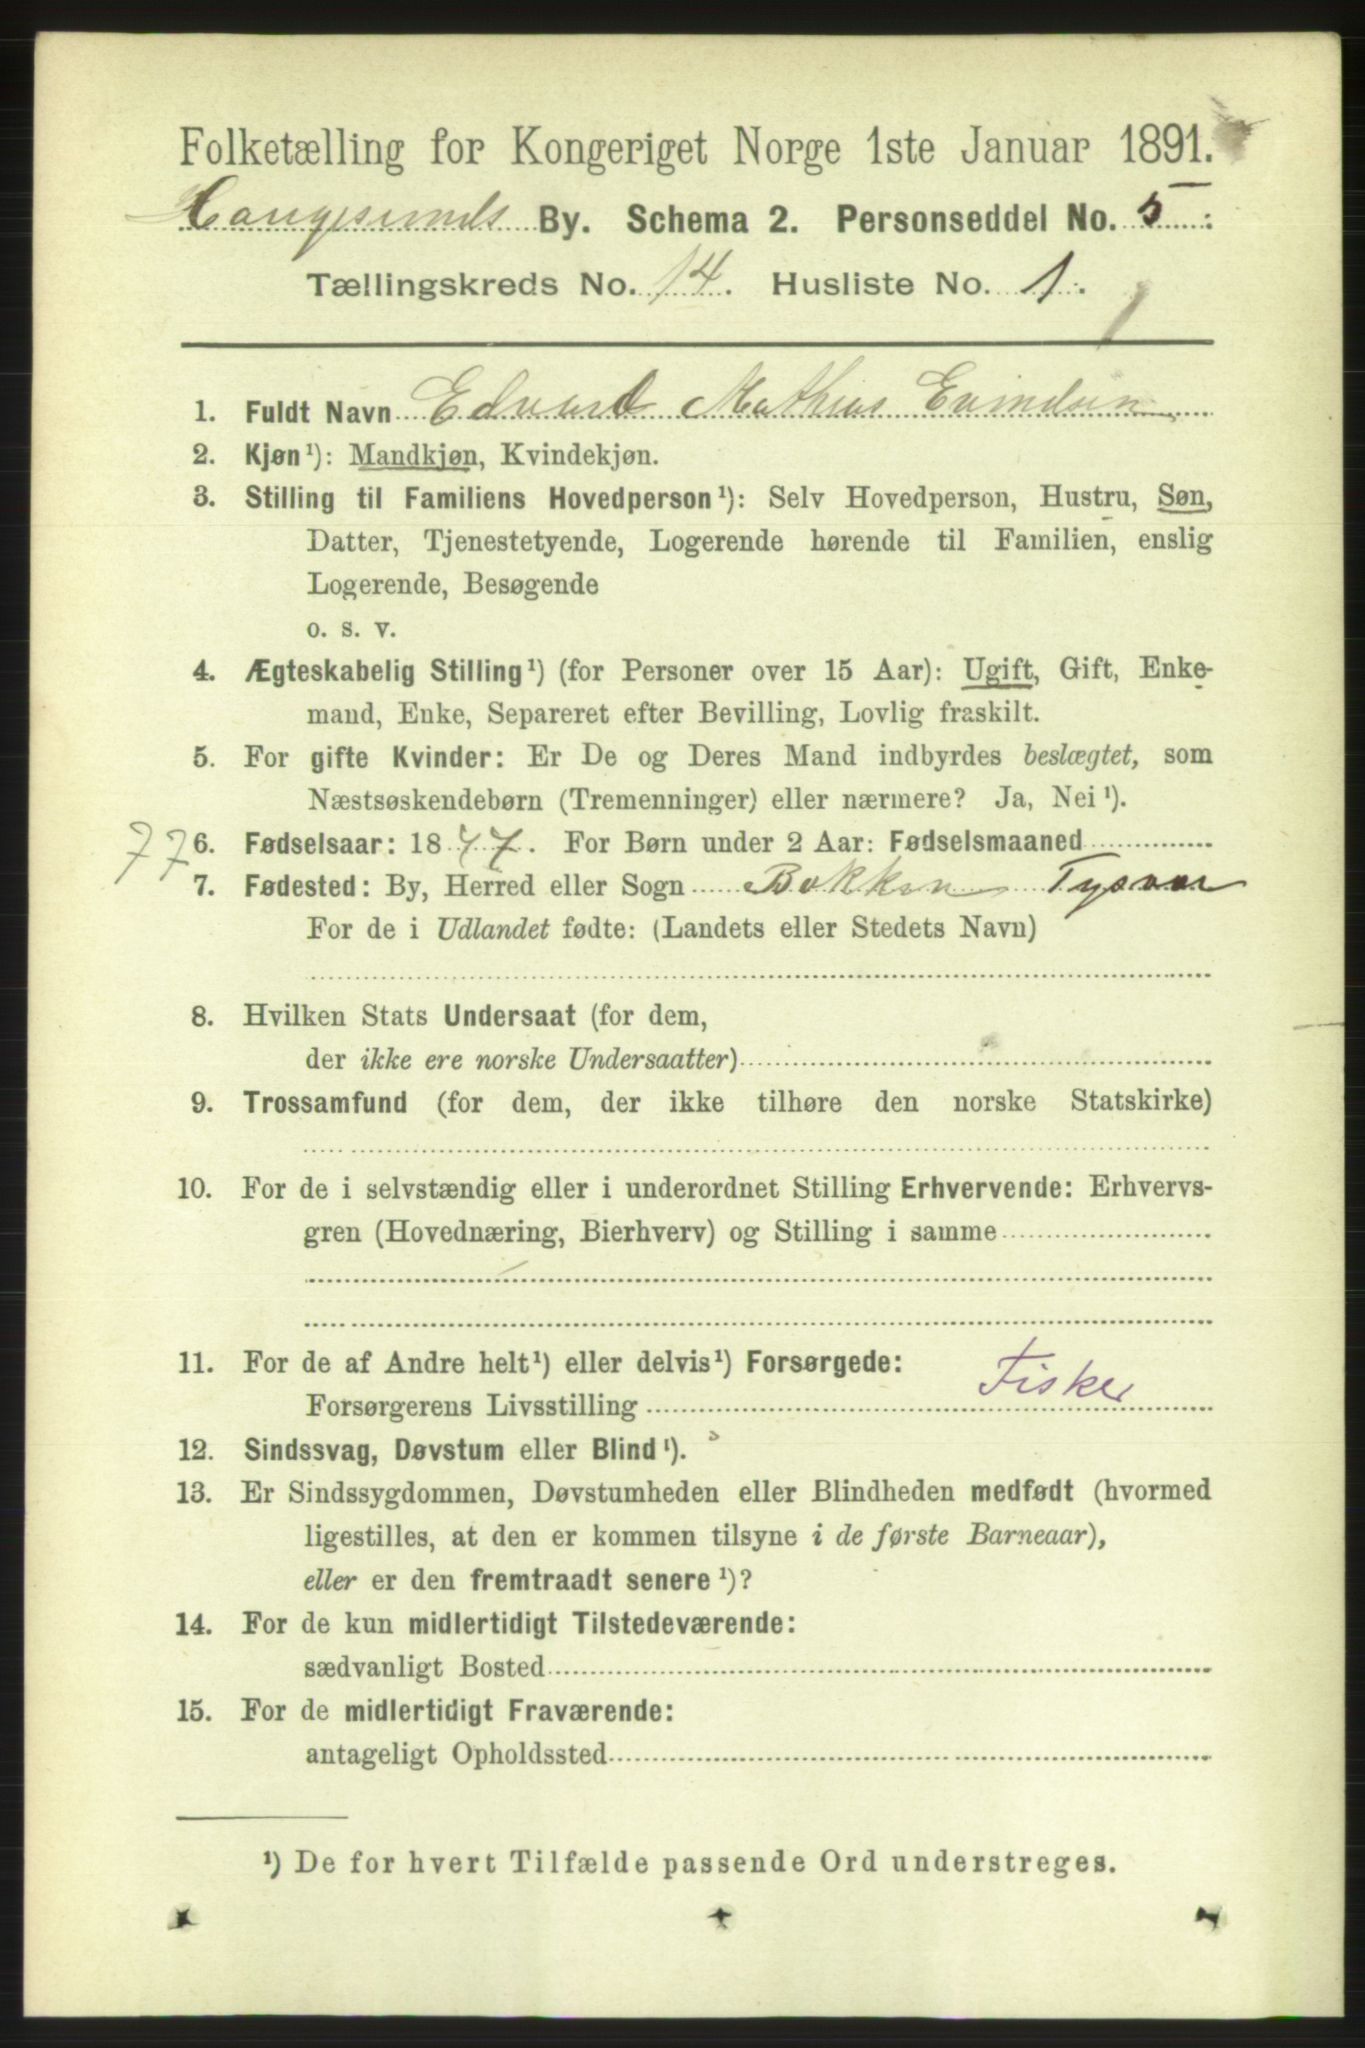 Folketælling for Kongeriget Norge 1ste Januar 1891.
Haugesunds By. Schema 2. Personseddel No. 5:
Tællingskreds No. 14. Husliste No. 1.
1. Fuldt Navn Edvard Mathias Evindsen
2. Kjøn¹): Mandkjøn, Kvindekjøn.
3. Stilling til Familiens Hovedperson¹): Selv Hovedperson, Hustru, Søn,
Datter, Tjenestetyende, Logerende hørende til Familien, enslig
Logerende, Besøgende
o. s. v.
4. Ægteskabelig Stilling¹) (for Personer over 15 Aar): Ugift, Gift, Enke-
mand, Enke, Separeret efter Bevilling, Lovlig fraskilt.
5. For gifte Kvinder: Er De og Deres Mand indbyrdes beslægtet, som
Næstsøskendebørn (Tremenninger) eller nærmere? Ja, Nei¹).
77 6. Fødselsaar: 1877. For Børn under 2 Aar: Fødselsmaaned
7. Fødested: By, Herred eller Sogn Bokken Tysvær
For de i Udlandet fødte: (Landets eller Stedets Navn)
8. Hvilken Stats Undersaat (for dem,
der ikke ere norske Undersaatter)
9. Trossamfund (for dem, der ikke tilhøre den norske Statskirke)
10. For de i selvstændig eller i underordnet Stilling Erhvervende: Erhvervs-
gren (Hovednæring, Bierhverv) og Stilling i samme
11. For de af Andre helt¹) eller delvis¹) Forsørgede:
Forsørgerens Livsstilling Fisker
12. Sindssvag, Døvstum eller Blind¹).
13. Er Sindssygdommen, Døvstumheden eller Blindheden medfødt (hvormed
ligestilles, at den er kommen tilsyne i de første Barneaar),
eller er den fremtraadt senere¹)?
14. For de kun midlertidigt Tilstedeværende:
sædvanligt Bosted
15. For de midlertidigt Fraværende:
antageligt Opholdssted
¹) De for hvert Tilfælde passende Ord understreges.